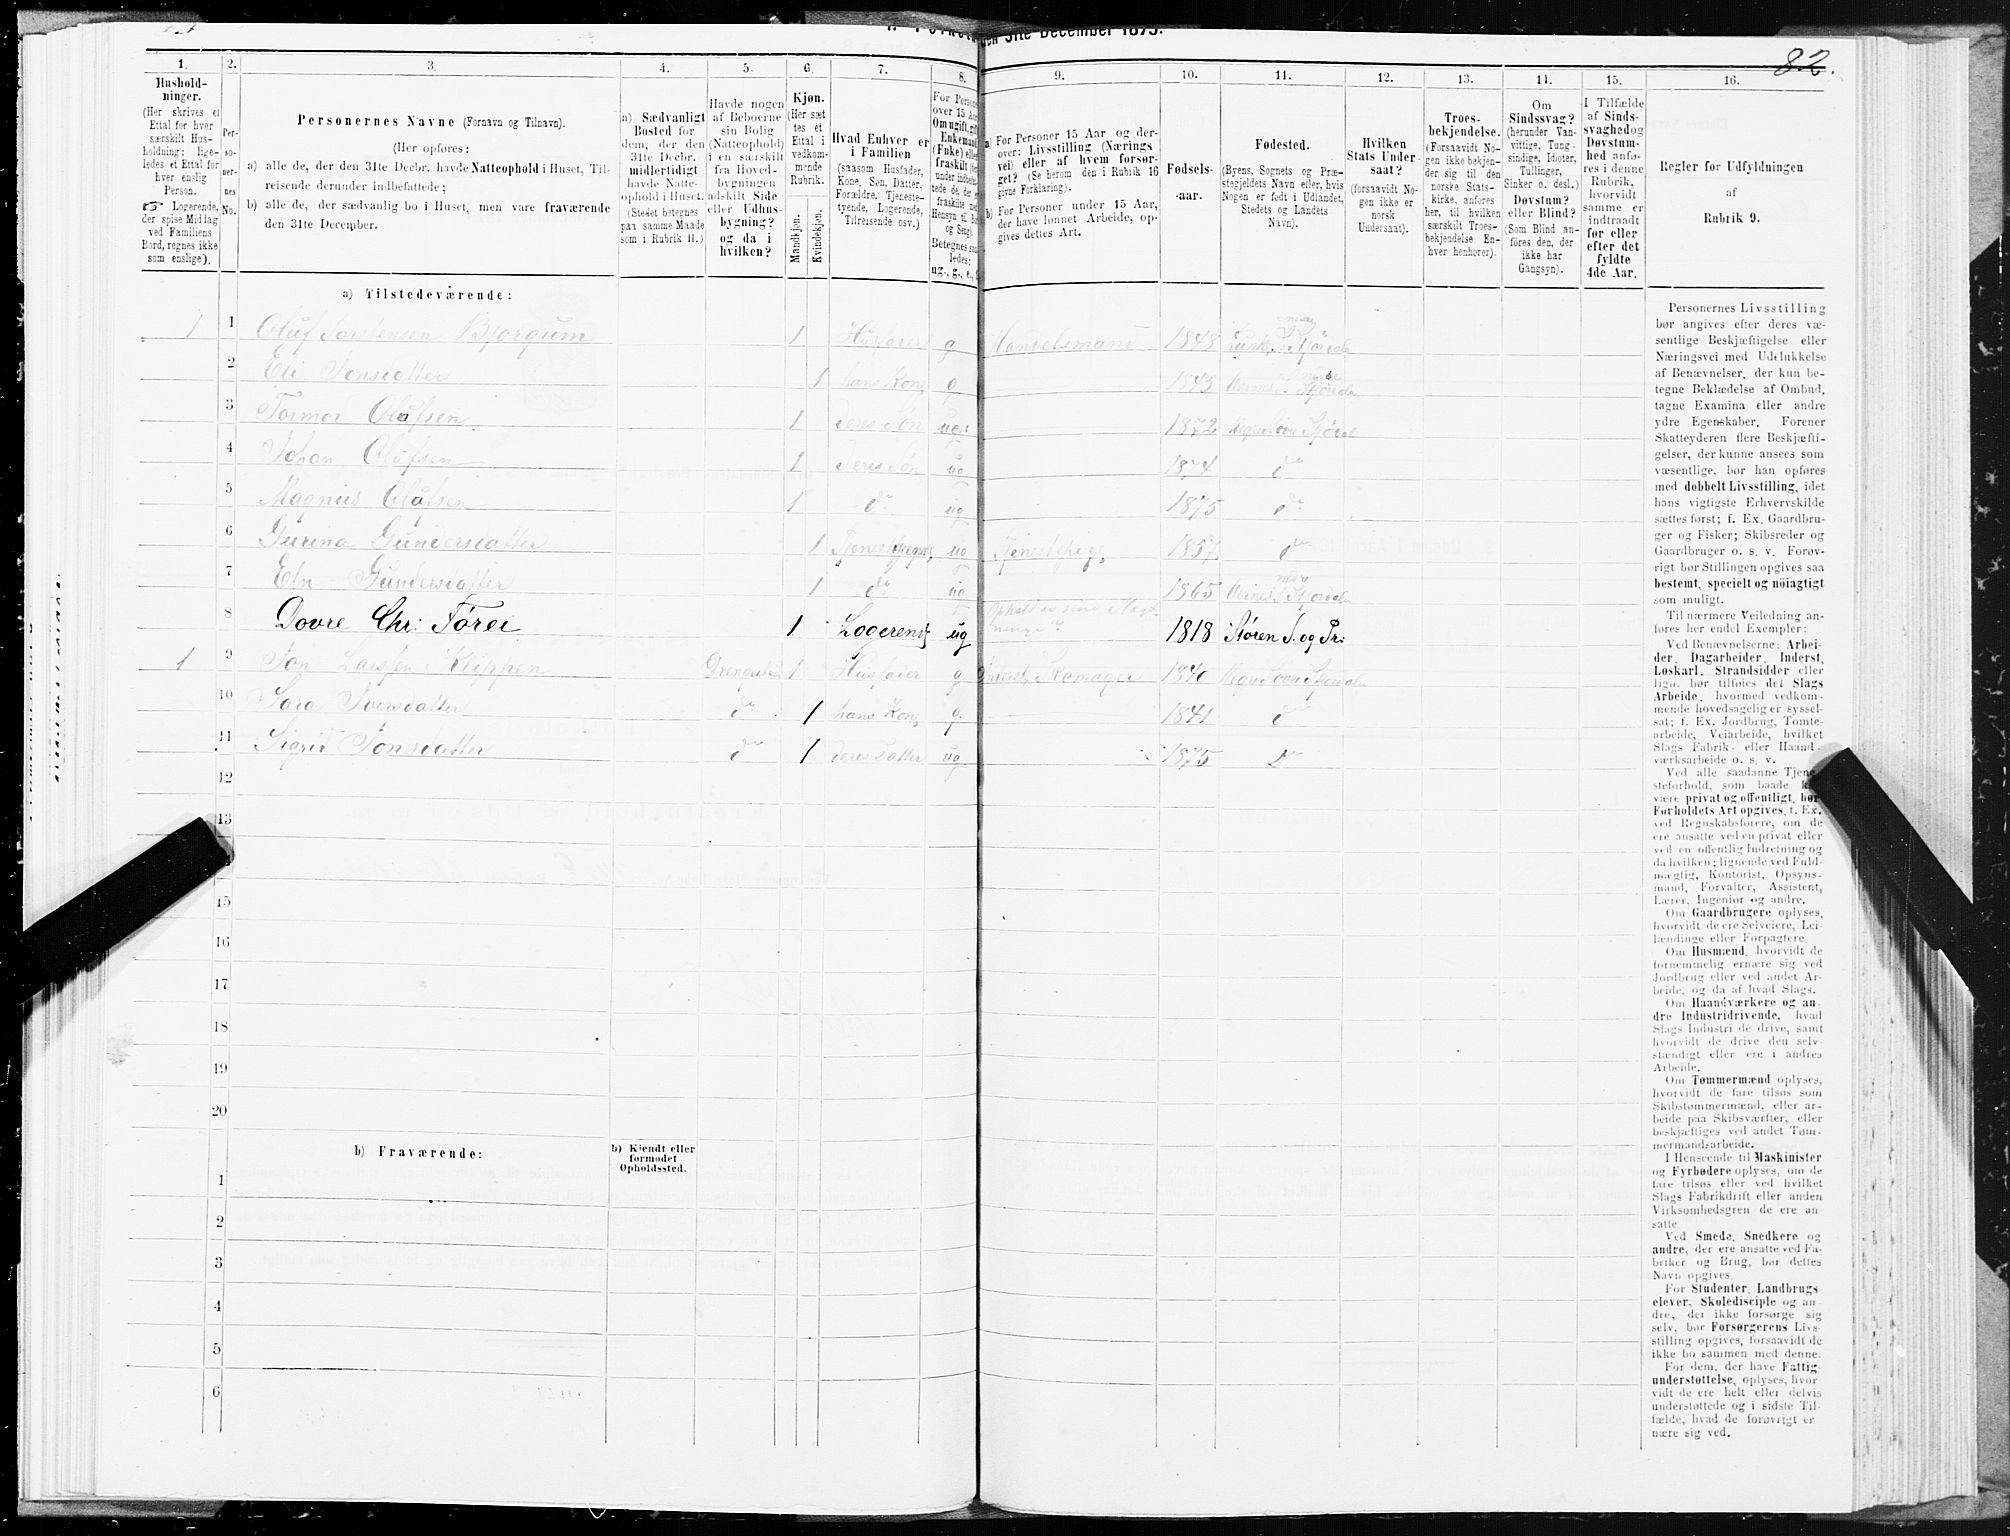 den 31te December 1875.
82.
1.
2.
3.
4.
5.
6.
7.
8.
9.
10.
11.
12.
13.
14.
15.
16.
Hushold-
ninger.
(Her skrives et
Ettal for hver
særskilt Hus-
holdning; lige-
ledes et Ettal for
hver enslig
Person.
Logerende,
der spise Middag
ved Familiens
Bord, regnes ikke
som enslige).
Per-
so-
ner-
nes
No.
Personernes Navne (Fornavn og Tilnavn).
(Her opføres:
a) alle de, der den 31te Decbr. havde Natteophold i Huset, Til-
reisende derunder indbefattede;
b) alle de, der sædvanlig bo i Huset, men vare fraværende
den 31te December.
a) Sædvanligt
Bosted for
dem, der den
31te Decbr.
midlertidigt
havde Natte-
ophold i Huset.
(Stedet betegnes
paa samme Maade
som i Rubrik 11.)
Havde nogen
af Beboerne
sin Bolig
(Natteophold)
i en særskilt
fra Hoved-
bygningen
adskilt Side
eller Udhus-
bygning?
og da i
hvilken?
Kjøn.
(Her sæt-
tes et
Ettal i
vedkom-
mende
Rubrik.
Mandkjøn.
Kvindekjøn.
Hvad Enhver er
i Familien
(saasom Husfader,
Kone, Søn, Datter,
Forældre, Tjeneste-
tyende, Logerende,
Tilreisende osv.)
For Personer
over 15 Aar
Om ugift, gift,
Enkemand
(Enke) eller
fraskilt
Betegnes saa-
ledes:
ug., g., e.,
a) For Personer 15 Aar og der-
over: Livsstilling (Nærings-
vei) eller af hvem forsør-
get? (Se herom den i Rubrik 16
givne Forklaring).
b) For Personer under 15 Aar,
der have lønnet Arbeide, op-
gives dettes Art.
Fødsels-
aar.
Fødested.
(Byens, Sognets og Præ-
stegjeldets Navn eller, hvis
Nogen er født i Udlandet,
Stedets og Landets
Navn).
Hvilken
Stats Under-
saat?
(forsaavidt No-
gen ikke er
norsk
Undersaat).
Troes-
bekjendelse.
(Forsaavidt No-
gen ikke bekjen-
der sig til den
norske Stats-
kirke, anføres
her, til hvilken
særskilt Troes-
bekjendelse En-
hver henhører).
Om
Sindssvag?
(herunder Van-
vittige, Tung-
sindige, Idioter,
Tullinger,
Sinker o. desl.)
Døvstum?
eller Blind?
(Som Blind an-
føres den, der
ikke har
Gangsyn).
I Tilfælde
af Sinds-
svaghed og
Døvstum-
hed anfø-
res i denne
Rubrik,
hvorvidt
samme er
indtraadt
før eller
efter det
fyldte
4de Aar.
Regler for Udfyldningen
af
Rubrik 9.
a) Tilstedeværende:
1 1 Oluf Torstensen Bjorgum 1 Husfader g Handelsmand 1848
2 Eli Jonsdatter 1 hans Kone g 1843
3 Tormod Olufsen 1 deres Søn ug. 1872
4 Johan Olufsen 1 deres Søn ug 1874 do
5 Magnus Olufsen 1 do ug 1875 do
6 Gurina Gundersdatter 1 ug Tjenestepige 1857 do
7 Gundersdatter 1 do ug 1865
8 Dovre Chr: Förei 1 Logerende ug 1818 Støren S. og Pr:
1 9 Jon Larsen Klippen 1 Husfader g. 1840
10 Sara Iversdatter do 1 hans Kone g. 1841 do
11 Sigrid Jonsdatter do 1 deres Datter ug 1875 Do
12
13
15
16
17
18
19
20
b) Fraværende:
b) Kjendt eller
formodet
Opholdssted.
1
2
3
4
5
6
Personernes Livsstilling
bør angives efter deres væ-
sentlige Beskjæftigelse eller
Næringsvei med Udelukkelse
af Benævnelser, der kun be-
tegne Beklædelse af Ombud,
tagne Examina eller andre
ydre Egenskaber. Forener
Skatteyderen flere Beskjæfti-
gelser, der kunne ansees som
væsentlige, bør han opføres
med dobbelt Livsstilling, idet
hans vigtigste Erhvervskilde
sættes først; f. Ex. Gaardbru-
ger og Fisker; Skibsreder og
Gaardbruger o. s. v. Forøv-
rigt bør Stillingen opgives saa
bestemt, specielt og nöiagtigt
som muligt.
Til nærmere Veiledning an-
føres her endel Exempler:
Ved Benævnelserne: Arbei-
der, Dagarbeider, Inderst,
Løskarl, Strandsidder eller
lign. bør tilføies det Slags
Arbeide, hvormed vedkom-
mende hovedsagelig er syssel-
sat; f. Ex. Jordbrug, Tomte-
arbeide, Veiarbeide, hvilket
Slags Fabrik- eller Haand-
værksarbeide o. s. v.
Ved alle saadanne Tjene-
steforhold, som baade
være privat og offentligt, bør
Forholdets Art opgives, f. Ex.
ved Regnskabsførere, om de
ere ansatte ved en privat eller
ved en offentlig Indretning og
da hvilken; lignende ved Fuld-
mægtig, Kontorist, Opsyns-
mand, Forvalter, Assistent,
Lærer, Ingeniør og andre.
Om Gaardbrugere oplyses,
hvorvidt de ere Selveiere, Lei-
lændinge eller Forpagtere.
Om Husmænd, hvorvidt de
fornemmelig ernære sig ved
Jordbrug eller ved andet Ar-
beide, og da af hvad Slags.
Om Haandværkere og an-
dre Industridrivende, hvad
Slags Industri de drive, samt
hvorvidt de drive den selv-
stændigt eller ere i andres
Arbeide.
Om Tømmermænd oplyses,
hvorvidt de fare tilsøs som
Skibstømmermænd, eller ar-
beide paa Skibsværfter, eller
beskjæftiges ved andet Tøm-
mermandsarbeide.
I Henseende til Maskinister
og Fyrbødere oplyses, om de
fare tilsøs eller ved hvilket
Slags Fabrikdrift eller anden
Virksomhedsgren de ere an-
satte.
Ved Smede, Snedkere og
andre, der ere ansatte ved Fa-
briker og Brug, bør dettes
Navn opgives.
For Studenter, Landbrugs-
elever, Skoledisciple og an-
dre, der ikke forsørge sig
selv, bør Forsørgerens Livs-
stilling opgives, forsaavidt de
ikke bo sammen med denne.
For dem, der have Fattig-
understøttelse, oplyses, hvor-
vidt de ere helt eller delvis
understøttede og i sidste Til-
fælde, hvad de forøvrigt er-
nære sig ved.